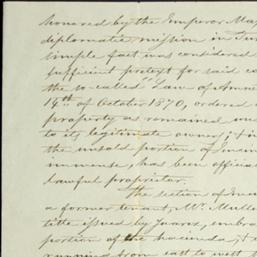 honored by the Emperor Max
diplomatic mission in Eur
simple fact was considered
sufficient pretext for said co
the so-called "Law of Amne
14th of October 1870, ordered
property as remained un
to its legitimate owner;
the unsold portion of
immense, has been official
lawful proprietor.
The section of
a former tenant, Mr. Mulle
title issued by Juarez, embra
portion of the hacienda,
running from east to west